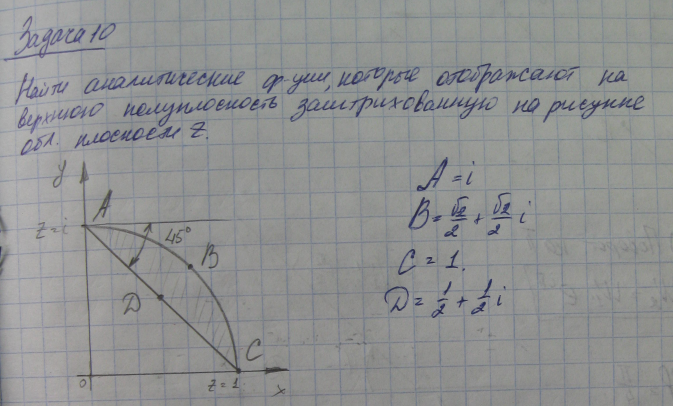 Задача 10
Найти аналитические ф-ции, которые отображают на
верхнюю полуплоскость заштрихованную на рисунке
обл. плоскости Z.
y
A
z=i
45°
B
D
C
0
z=1
x
A = i
B = √2/2 + √2/2 i
C = 1.
D = 1/2 + 1/2 i